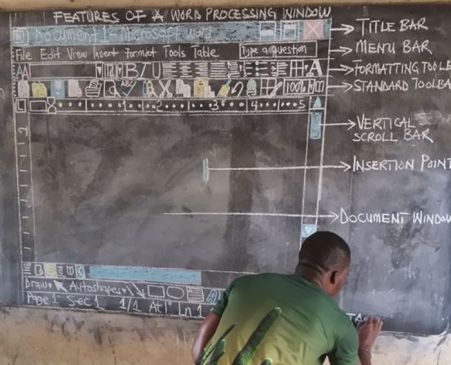 FEATURES OF A WORD PROCESSING WINDOW
Document 1-Microsoft word
TITLE BAR
File Edit View Insert Format Tools Table
Type a question
MENU BAR
AA
B I U
A
FORMATTING TOOLB
100%
STANDARD TOOLBA
1 2 3 4 5
VERTICAL
SCROLL BAR
INSERTION POINT
DOCUMENT WINDOW
Draw Autoshapes
Page 1 Sec 1 1/1 At 1 Ln 1
TA